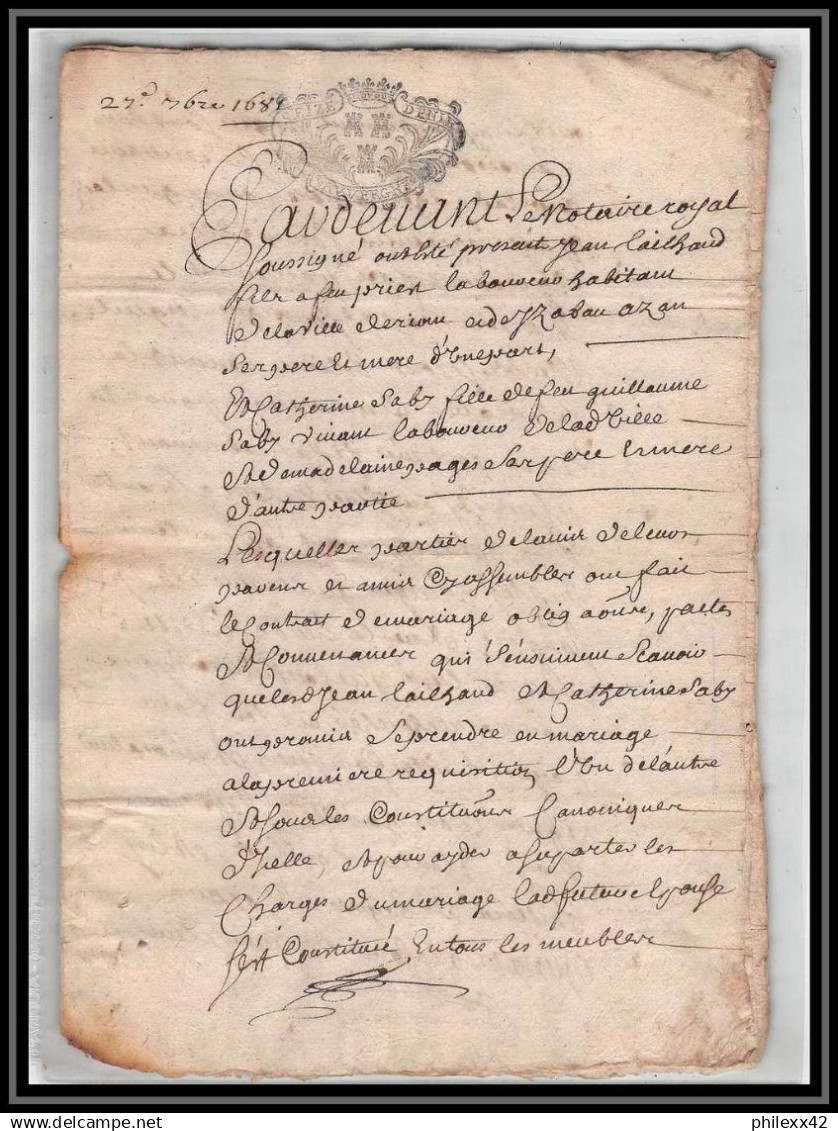 27e 7bre 1689
SEIZE DENIERS
AUVERGNE
Pardevant Le Notaire royal
soussigné ont esté present Jean Lailhaud
fils a feu prier laboureur habitant
de la ville de et de Yzabau azan
ses pere et mere d'une part,
Et Catherine Saby fille de feu guillaume
Saby vivant laboureur de lad ville
et de madelaine pages ses pere et mere
d'autre partie
Lesquelles parties de lavis de leurs
parens et amis Cy assembles ont fait
le Contrat de mariage obligaõns, pactes
et Convenances qui s'ensuivent Scavoir
que lesd Jean Lailhaud et Catherine Saby
ont promis se prendre en mariage
a la premiere requisition L'Un de l'autre
et sous les Constitutõns Canoniques
d'Icelle, et pour ayder a suporter les
Charges du mariage lad future Epouse
s'est Constitué En tous les meubles
philexx42